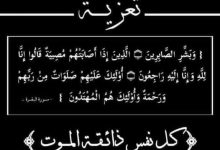 تعزية
﴿ وَبَشِّرِ الصَّابِرِينَ ۞ الَّذِينَ إِذَا أَصَابَتْهُمْ مُصِيبَةٌ قَالُوا إِنَّا
لِلَّهِ وَإِنَّا إِلَيْهِ رَاجِعُونَ ۞ أُولَئِكَ عَلَيْهِمْ صَلَوَاتٌ مِنْ رَبِّهِمْ
وَرَحْمَةٌ وَأُولَئِكَ هُمُ الْمُهْتَدُونَ ﴾
سورة البقرة
﴿ كل نفس ذائقة الموت ﴾